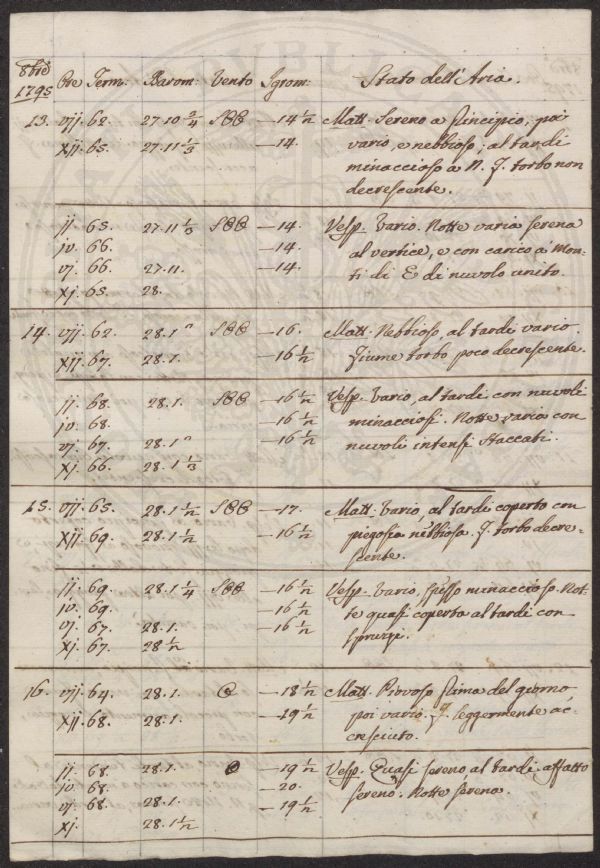 8bre
1795 Ore Term. Barom. Vento Igrom. Stato dell'Aria.
13. vij. 62. 27.10 3/4 SOO —14 1/2 Matt. Sereno a principio, poi
xij. 65. 27.11 1/3 —14. vario, e nebbioso; al tardi
minaccioso a N. f. torbo non
decrescente.
ij. 65. 27.11 1/3 SOO —14. Vesp. Vario. Notte varia serena
iv. 66. —14. al vertice, e con carico a Mon-
vj. 66. 27.11. —14. ti di E di nuvolo unito.
xj. 65. 28.
14. vij. 62. 28.1" SOO —16. Matt. Nebbioso, al tardi vario.
xij. 67. 28.1. —16 1/2 Fiume torbo poco decrescente.
ij. 68. 28.1. SOO —16 1/2 Vesp. Vario, al tardi con nuvoli
iv. 68. —16 1/2 minacciosi. Notte varia con
vj. 67. 28.1" —16 1/2 nuvoli intensi staccati.
xj. 66. 28.1 1/3
15. vij. 65. 28.1 1/2 SOO —17. Matt. Vario, al tardi coperto con
xij. 69. 28.1 1/2 —16 1/2 piogosia nebbiosa. f. torbo decre-
scente.
ij. 69. 28.1 1/4 SOO —16 1/2 Vesp. Vario, spesso minaccioso. Not-
iv. 69. —16 1/2 te quasi coperta al tardi con
vj. 67. 28.1. —16 1/2 spruzzi.
xj. 67. 28 1/2
16. vij. 64. 28.1. O —18 1/2 Matt. Piovoso prima del giorno,
xij. 68. 28.1. —19 1/2 poi vario. f. leggermente ac-
cresciuto.
ij. 68. 28.1. O —19 1/2 Vesp. Quasi sereno, al tardi affatto
iv. 68. —20. sereno. Notte serena.
vj. 68. 28.1. —19 1/2
xj. 28.1 1/2